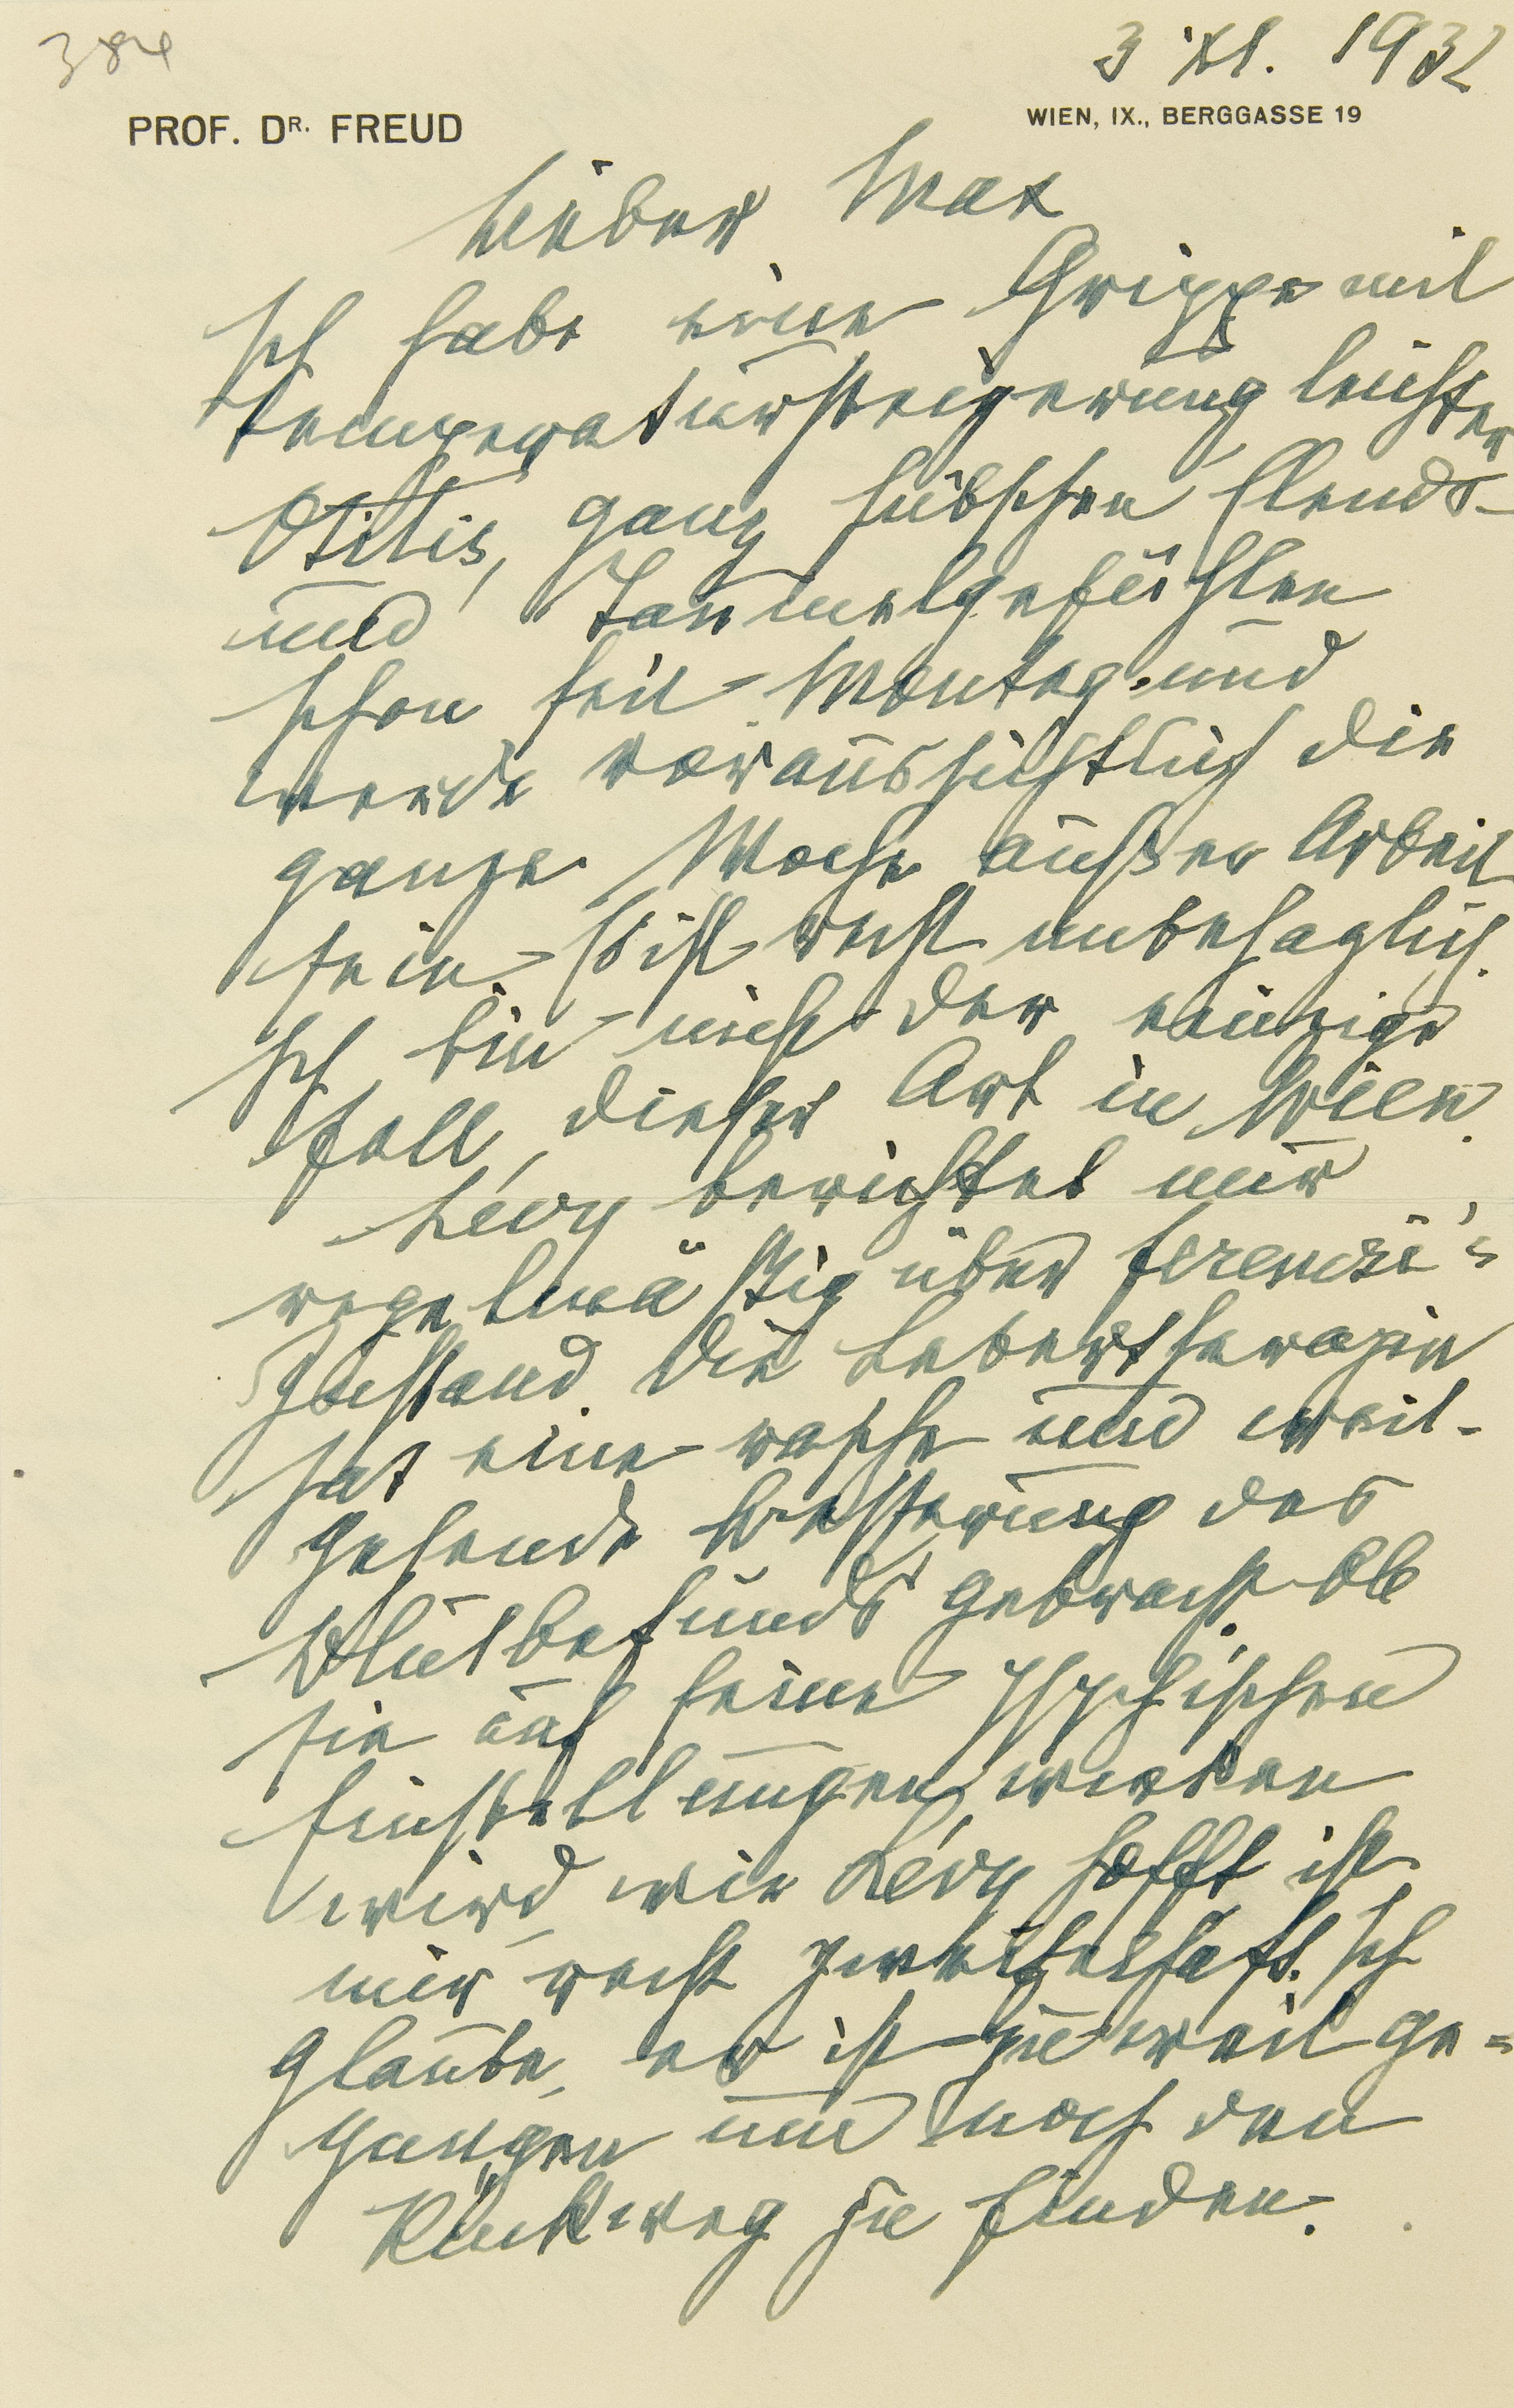 384
3 XI. 1932
PROF. DR. FREUD
WIEN, IX., BERGGASSE 19
Lieber Max
Ich habe eine Grippe mit
Temperatursteigerung leichter
Otitis, ganz hübschen Elends-
und Taumelgefühlen
schon seit Montag und
werde voraussichtlich die
ganze Woche außer Arbeit
sein. Es ist recht unbehaglich.
Ich bin nicht der einzige
Fall dieser Art in Wien.
Lévy berichtet mir
regelmäßig über Ferenczi's
Zustand. Die Lebertherapie
hat eine rasche und weit-
gehende Besserung des
Blutbefunds gebracht. Ob
sie auf seine psychischen
Einstellungen wirken
wird, wie Lévy hofft ist
mir recht zweifelhaft. Ich
glaube, er ist zu weit ge-
gangen um noch den
Rückweg zu finden.